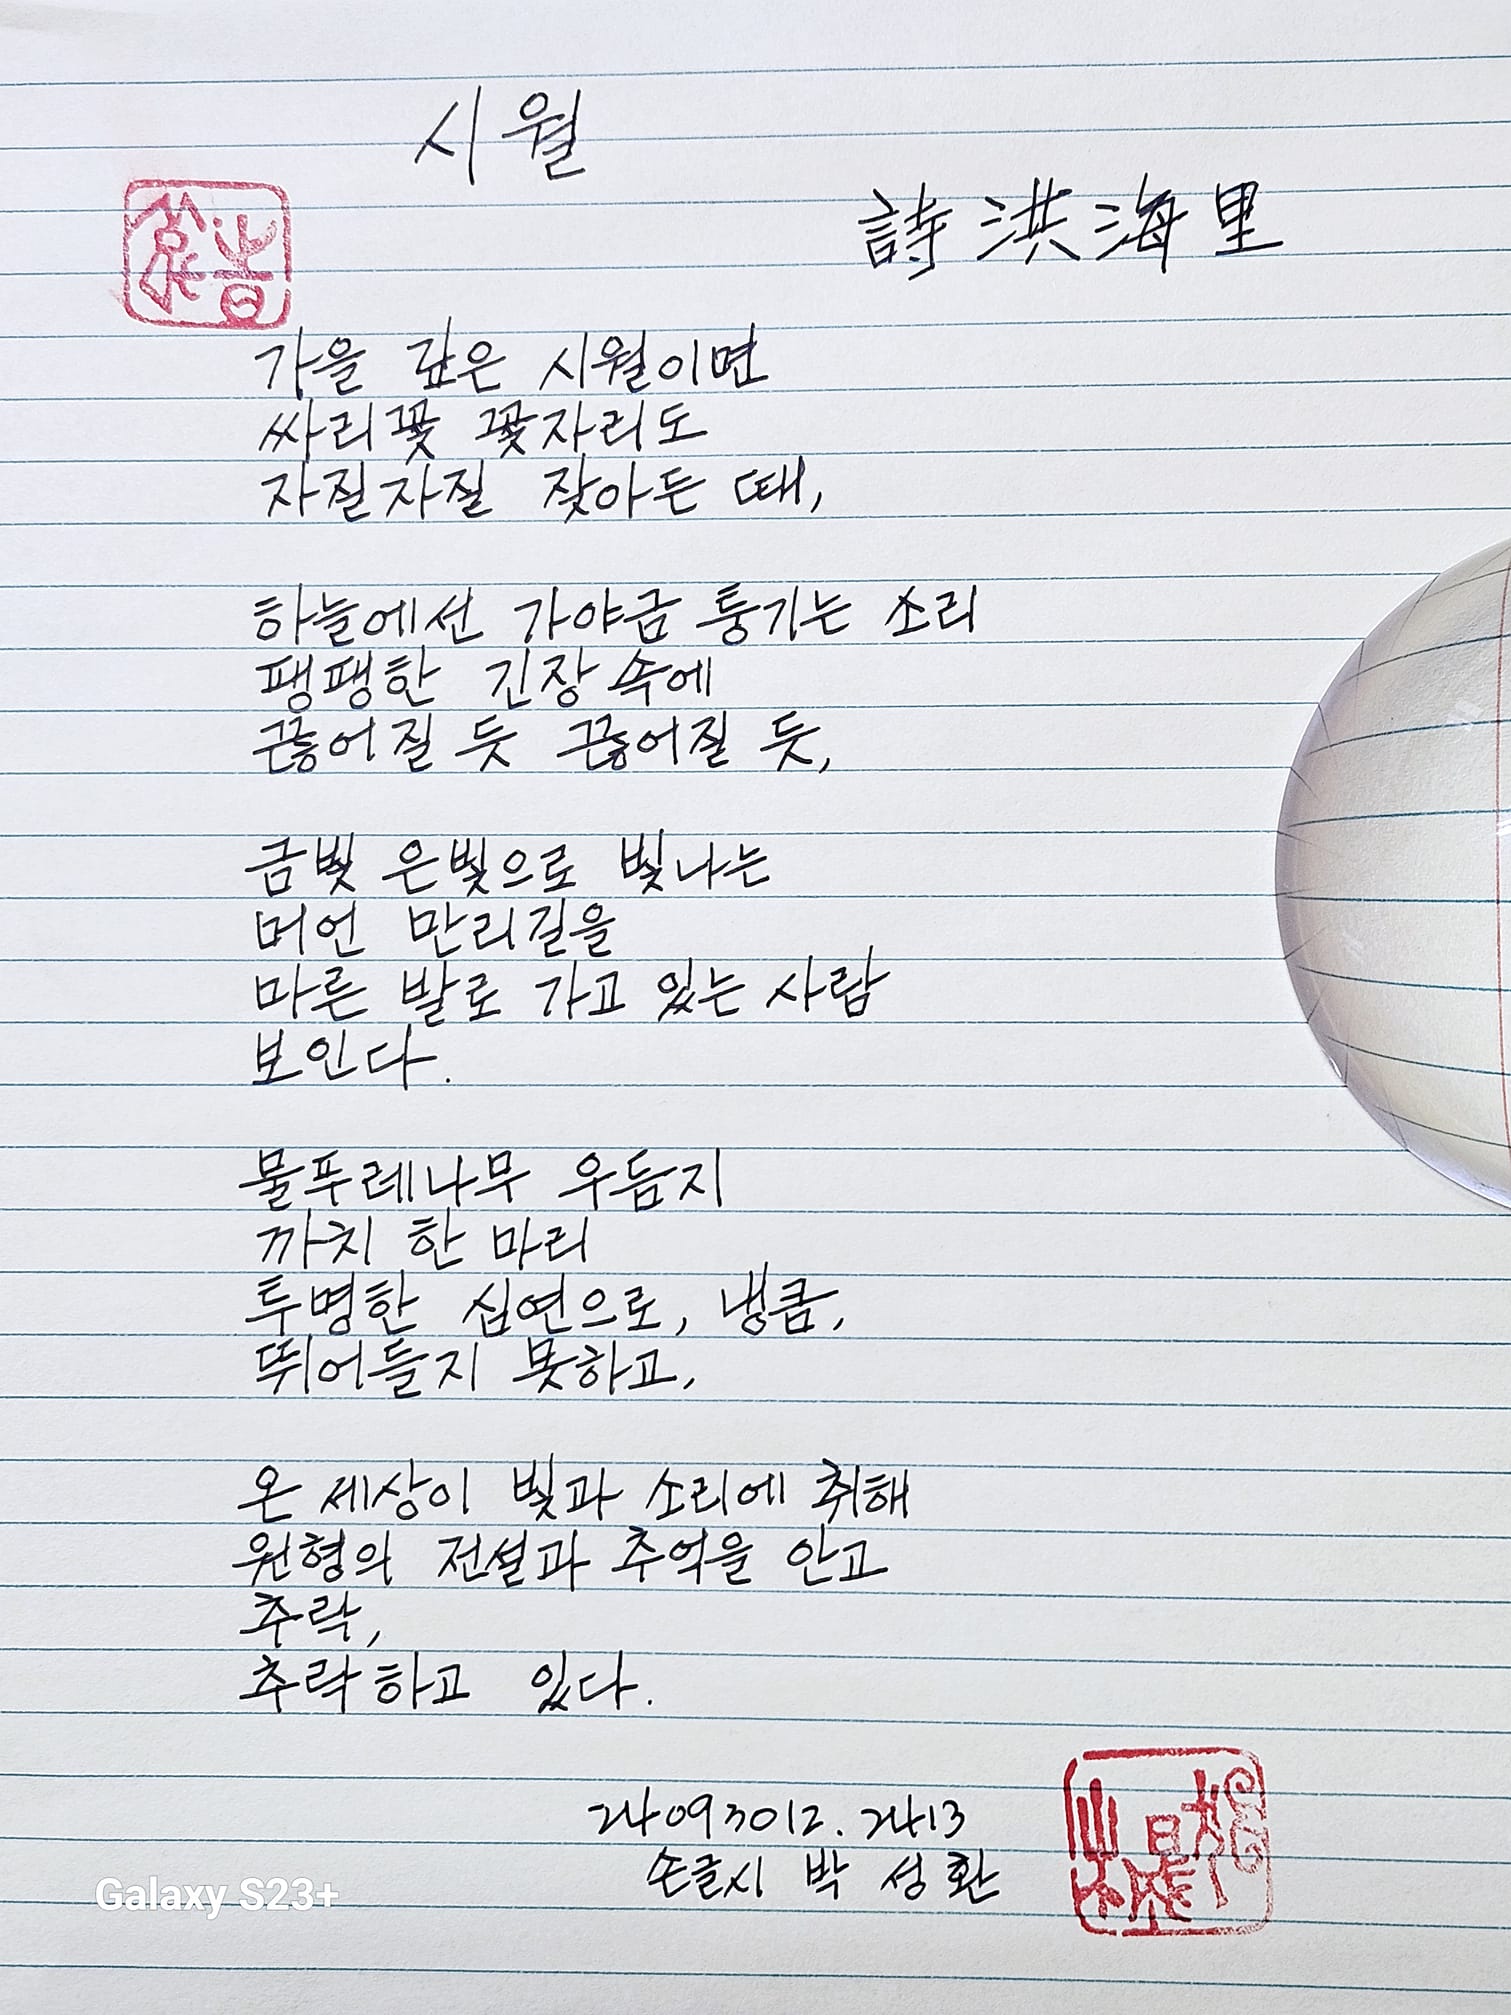 시월
詩 洪海里
가을 깊은 시월이면
싸리꽃 꽃자리도
자질자질 잦아든 때,
하늘에선 가야금 퉁기는 소리
팽팽한 긴장 속에
끊어질 듯 끊어질 듯,
금빛 은빛으로 빛나는
머언 만리길을
마른 발로 가고 있는 사람
보인다.
물푸레나무 우듬지
까치 한 마리
투명한 심연으로, 냉큼,
뛰어들지 못하고,
온 세상이 빛과 소리에 취해
원형의 전설과 추억을 안고
추락,
추락하고 있다.
24093012. 2413
손글시 박 성 환
Galaxy S23+